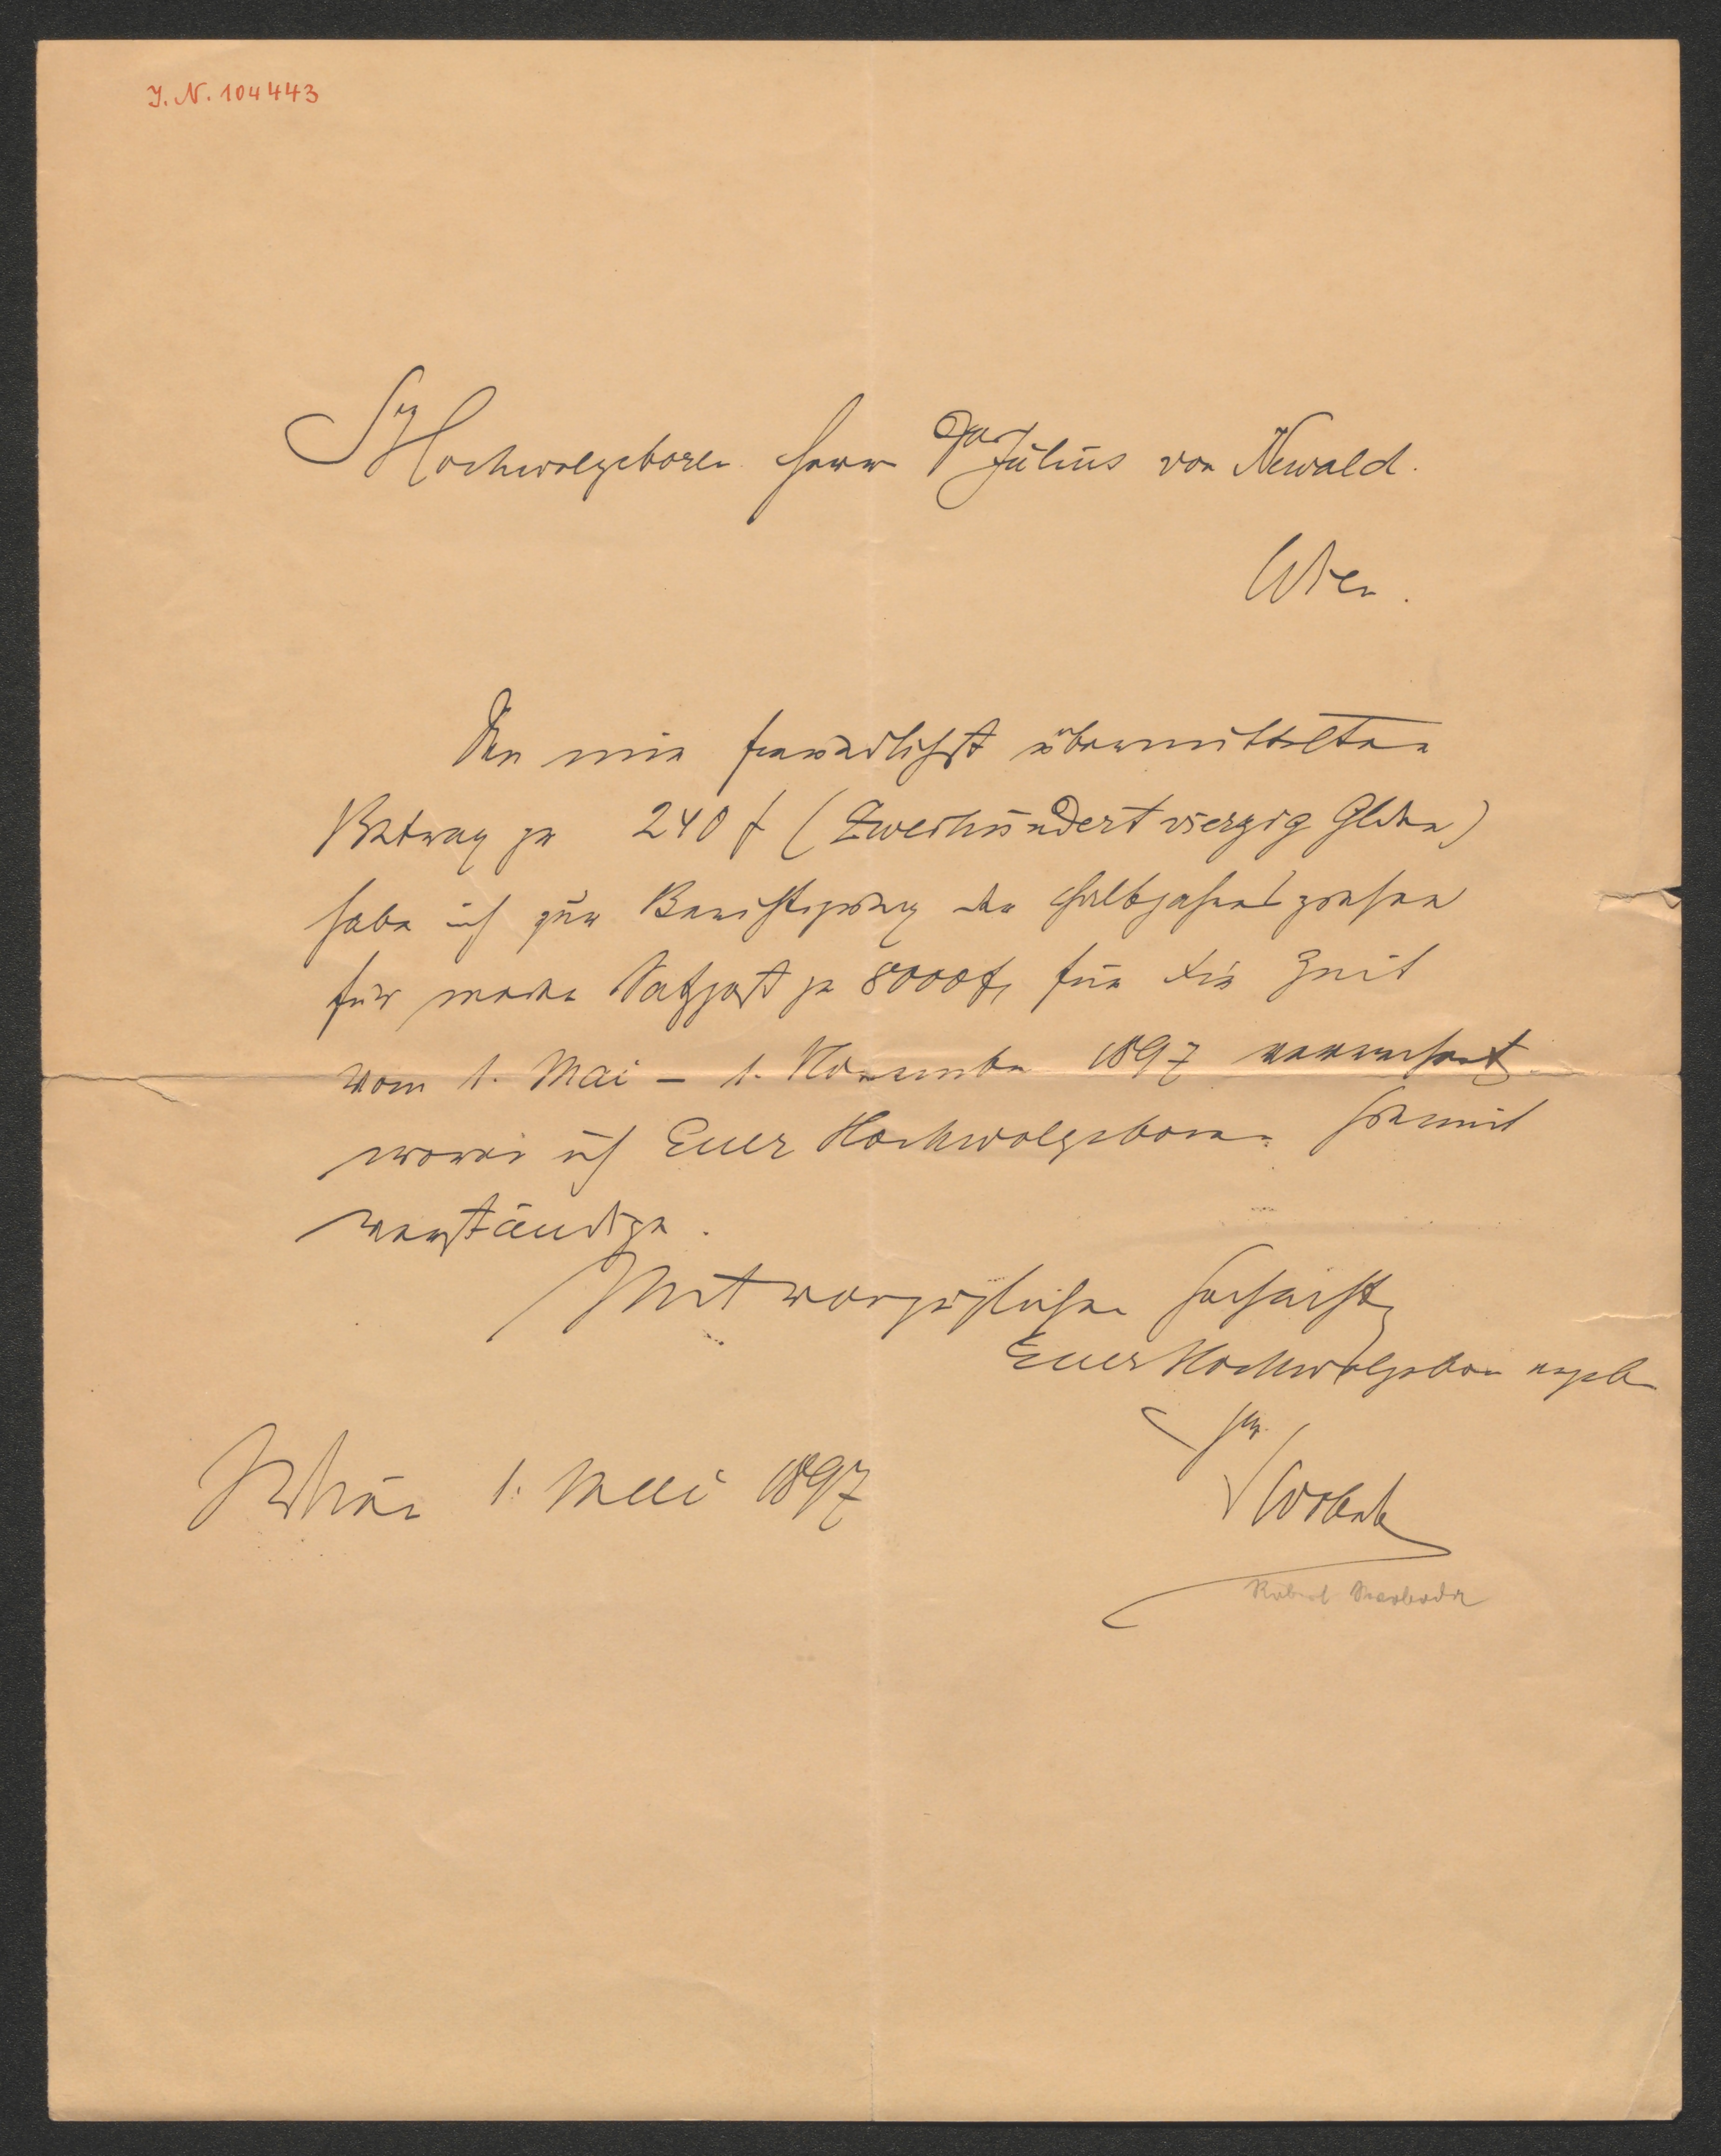 J. N. 104443
Sr Hochwolgeboren Herrn Julius von Newald.
Wien.
Den mir freundlichst übermittelten
Betrag pr 240 f (Zweihundert vierzig Glden)
habe ich zur Berichtigung der Halbjahreszinsen
für meine Satzpost pr 8000 f, für die Zeit
vom 1. Mai – 1. November 1897 verwerthet
wovon ich Euer Hochwolgeboren hiemit
verständige.
Mit vorzüglicher Hochacht
Euer Hochwolgeboren ergeb
1. Mai 1897
Robert